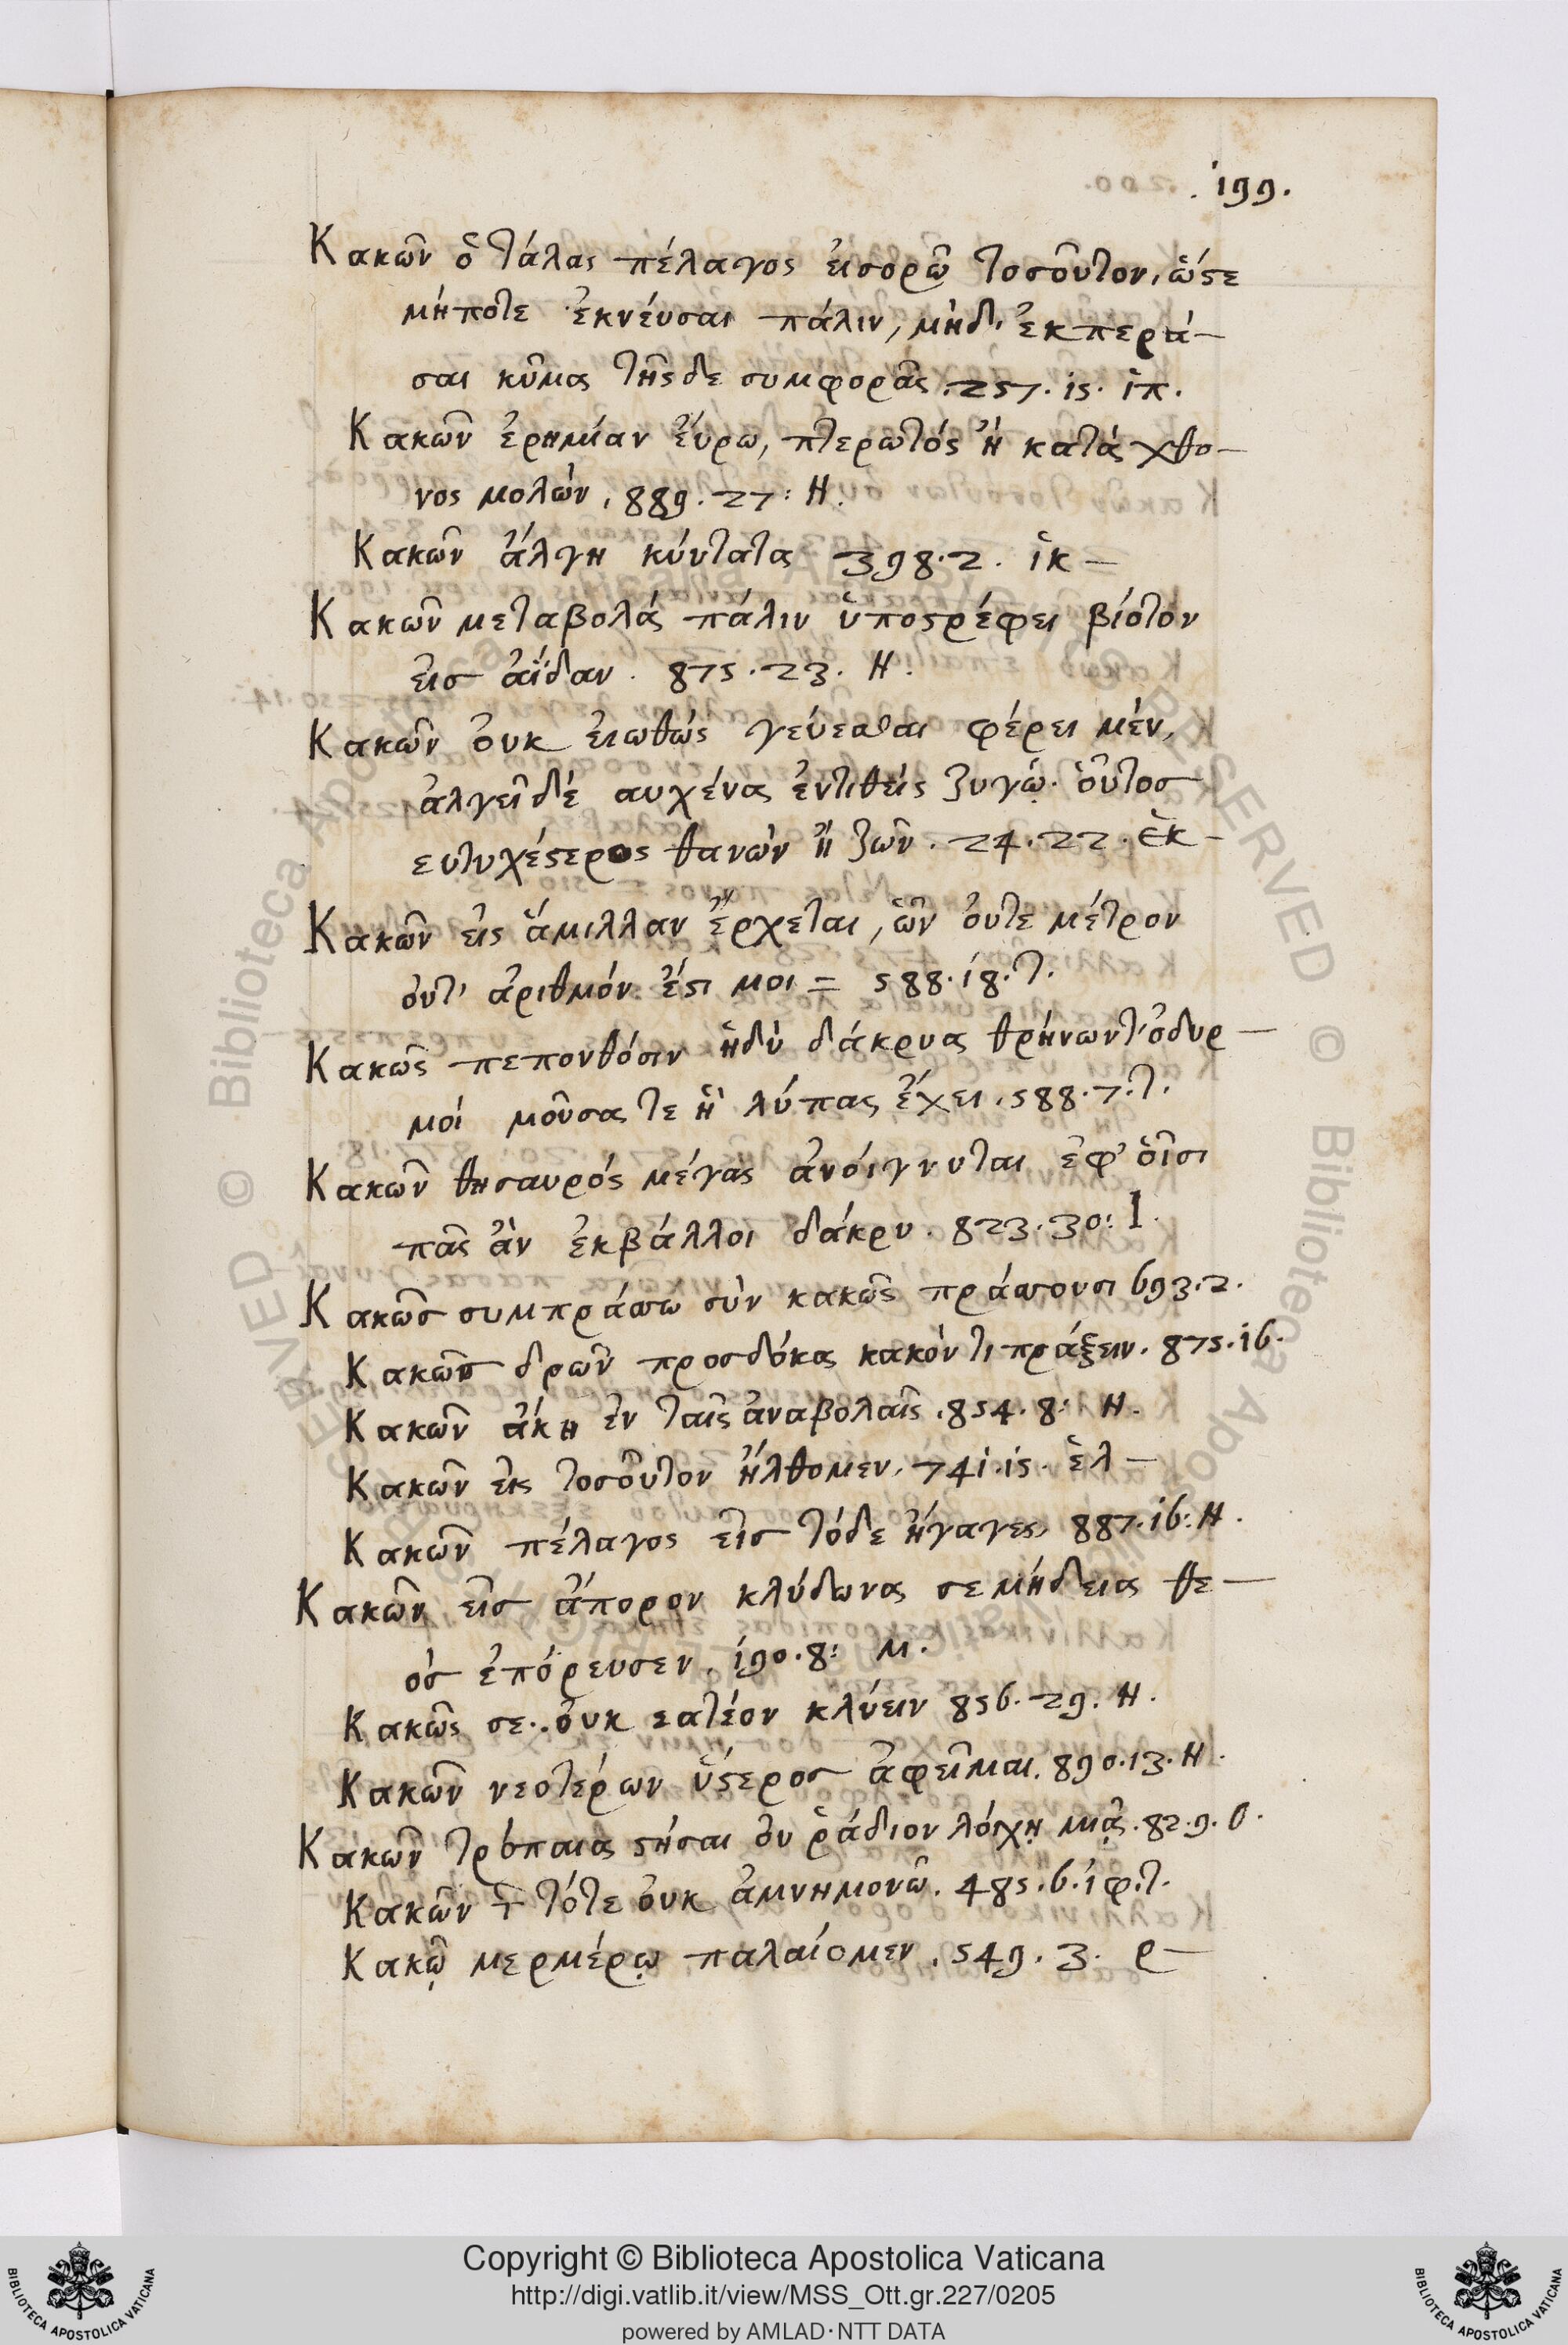 199.
Κακῶν ὅ τάλας πέλαγος εἰσορῶ τοσοῦτον, ὥστε
μήποτε ἐκνέυσαι πάλιν, μὴδ' ἐκπερά-
σαι κῦμα τῆςδε συμφορᾶς. 257. 15. ἱπ.
Κακῶν ἐρημίαν ἕυρω, πτερωτός ἤ κατά χθο-
νος μολών. 889. 27: Η.
Κακῶν ἄλγη κύντατα 398. 2. ἱκ-
Κακῶν μεταβολάς πάλιν ὑποστρέφει βίοτον
εἰσ ἀΐδαν. 875. 23. Η.
Κακῶν ὀυκ ἐιωθώς γεύεσθαι φέρει μὲν,
ἀλγεῖ δέ αυχένα ἐντιθείς ζυγῷ. ὁῦτοσ
ευτυχέστερος θανών ἤ ζῶν. 24. 22. ἐκ-
Κακῶν εἰς ἅμιλλαν ἔρχεται, ὧν ὀυτε μέτρον
ὀυτ' ἀριθμόν ἐστι μοι = 588. 18. τ.
Κακῶς πεπονθόσιν ἡδὺ δάκρυα θρήνων τ' ὀδυρ-
μοί μοῦσα τε ἥ λύπας ἔχει. 588. 7. τ.
Κακῶν θησαυρός μέγας ἀνοίγνυται ἐφ' ὁῖσι
πᾶς ἂν ἐκβάλλοι δάκρυ. 823. 30: Ι.
Κακῶσ συμπράσσω σὺν κακῶς πράσσουσι 693. 2.
Κακῶσ δρῶν προσδόκα κακόν τι πράξειν. 875. 16.
Κακῶν ἀκη ἐν ταῖς ἀναβολαῖς. 854. 8: Η.
Κακῶν εἰς τοσοῦτον ἤλθομεν. 741. 15. ἑλ-
Κακῶν πέλαγος εἰσ τόδε ἤγαγες, 887. 16: Η.
Κακῶν εἰσ ἄπορον κλύδωνα σε μήδεια θε-
όσ ἐπόρευσεν. 190. 8: μ.
Κακῶς σε.. ὀυκ εατέον κλύειν 856. 29. Η.
Κακῶν νεοτέρων ὕστεροσ ἀφεῖμαι. 890. 13. Η.
Κακῶν τρόπαια στήσαι ὀυ ῥάδιον λόγχῃ μιᾷ. 82. 9. ο.
Κακῶν τῶν τότε ὀυκ ἀμνημονῶ. 485. 6. ἰφ. τ.
Κακῷ μερμέρῳ παλαίομεν. 549. 3. ρ-
Copyright © Biblioteca Apostolica Vaticana
http://digi.vatlib.it/view/MSS_Ott.gr.227/0205
powered by AMLAD·NTT DATA
BIBLIOTECA APOSTOLICA VATICANA
BIBLIOTECA APOSTOLICA VATICANA